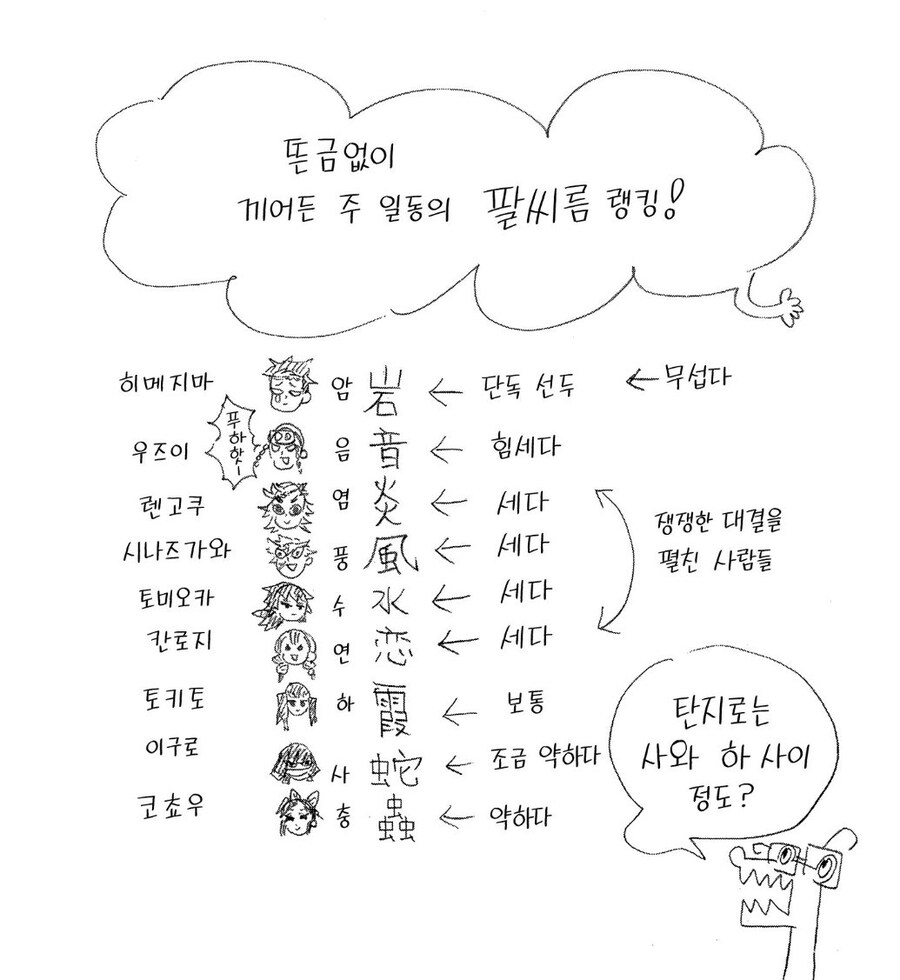 뜬금없이
끼어든 주 일동의 팔씨름 랭킹!
히메지마 암 岩 ← 단독 선두 ← 무섭다
우즈이 푸하핫ー 음 音 ← 힘세다
렌고쿠 염 炎 ← 세다
시나즈가와 풍 風 ← 세다
토미오카 수 水 ← 세다
칸로지 연 恋 ← 세다
쟁쟁한 대결을
펼친 사람들
토키토 하 霞 ← 보통
이구로 사 蛇 ← 조금 약하다
코쵸우 충 蟲 ← 약하다
탄지로는
사와 하 사이
정도?